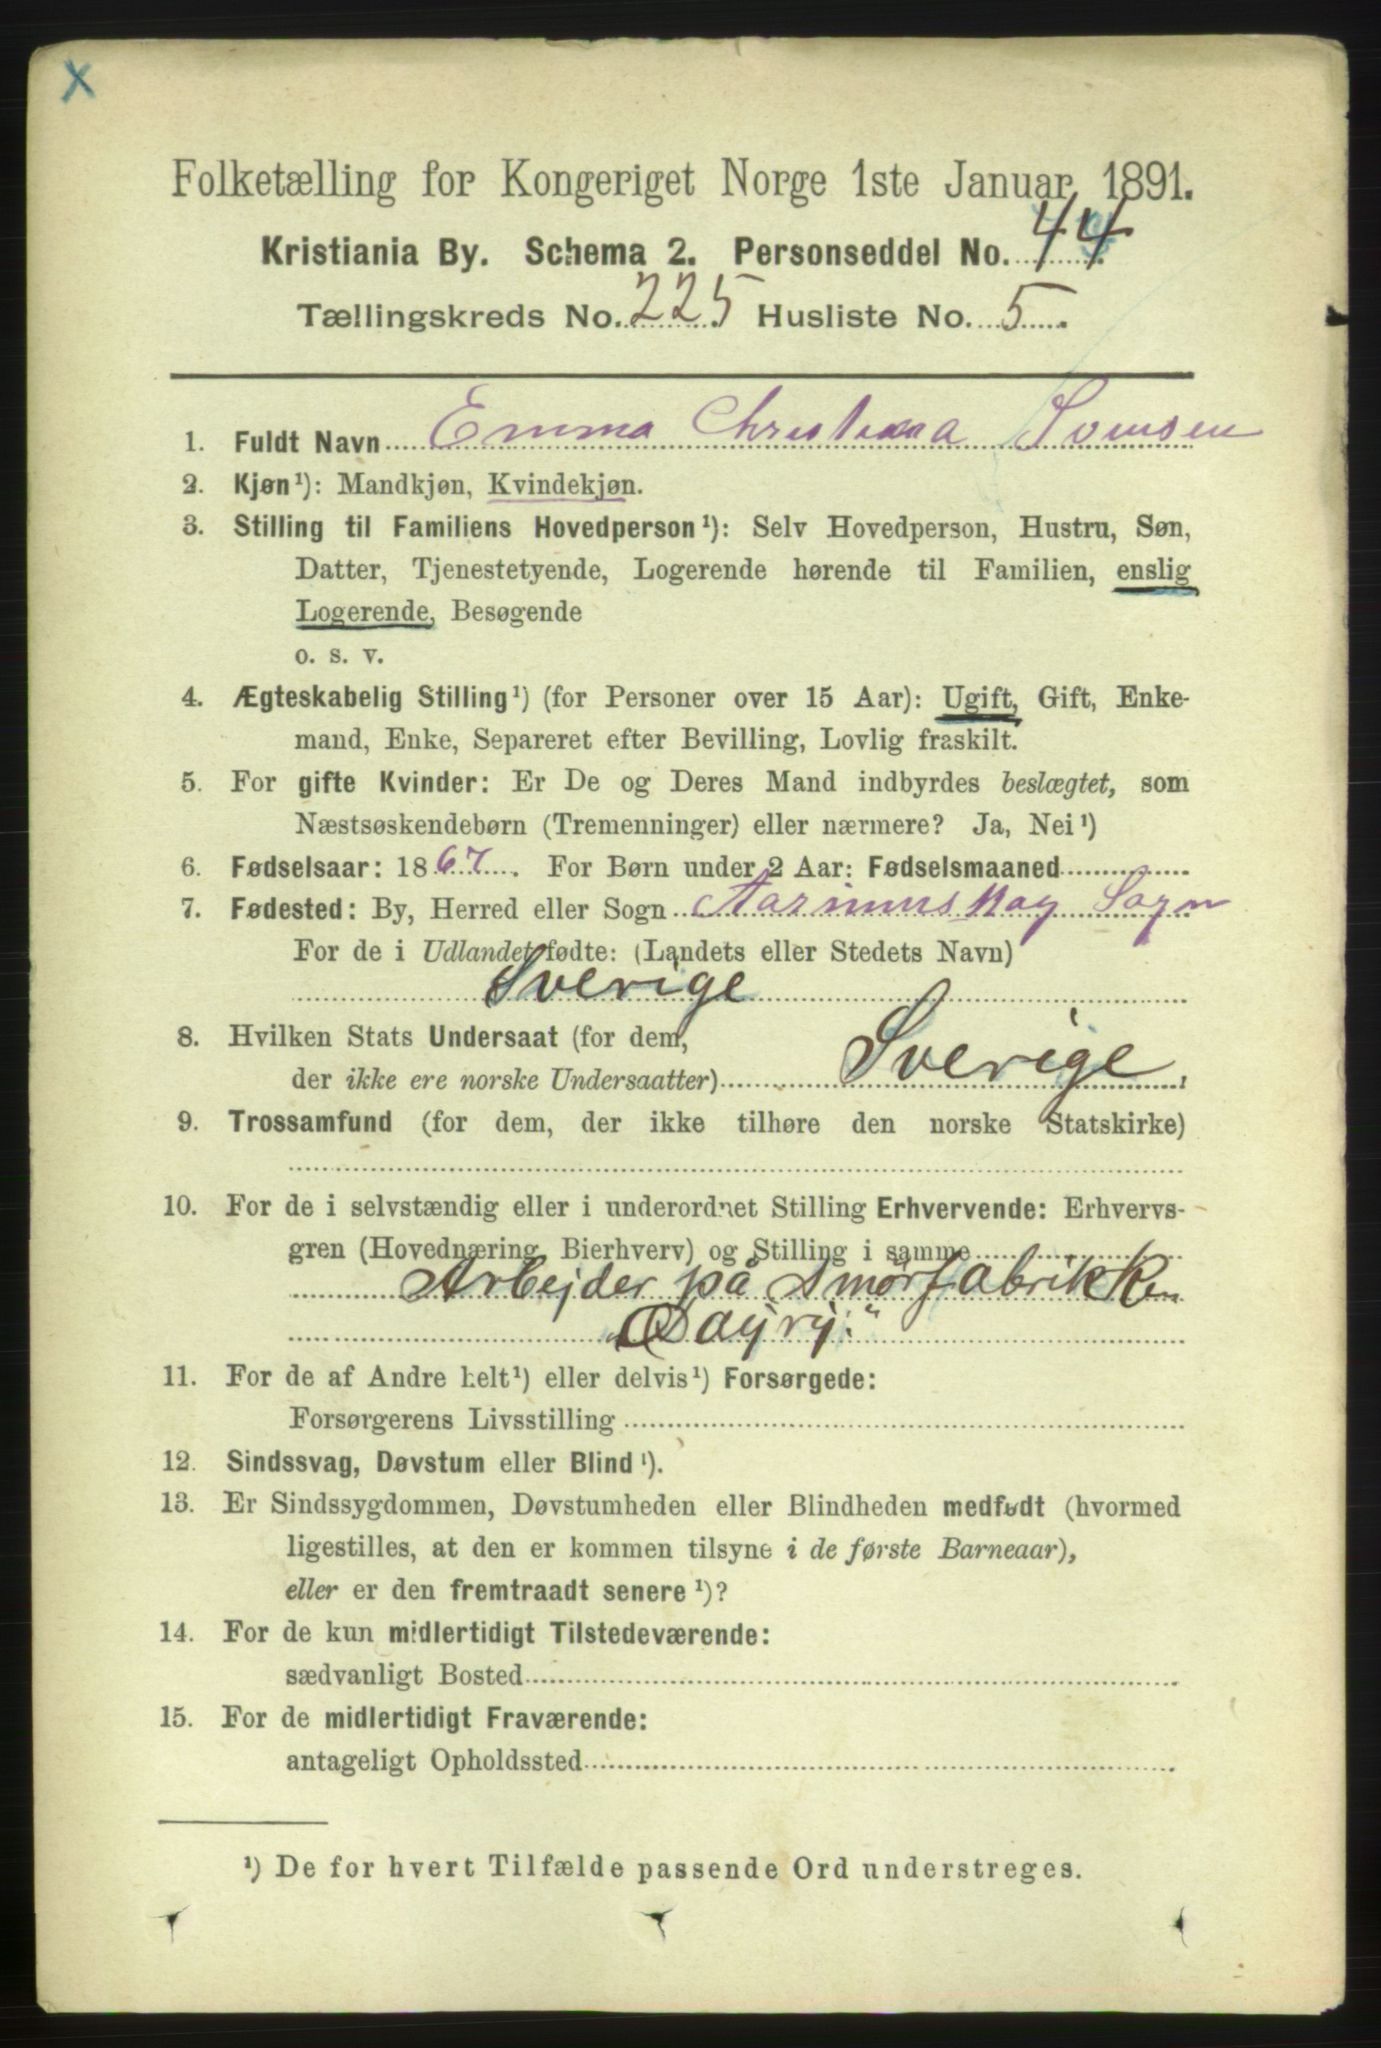 X
Folketælling for Kongeriget Norge 1ste Januar 1891.
Kristiania By. Schema 2. Personseddel No. 44
Tællingskreds No. 225 Husliste No. 5
1. Fuldt Navn Emma Christina Svensen
2. Kjøn¹): Mandkjøn, Kvindekjøn.
3. Stilling til Familiens Hovedperson¹): Selv Hovedperson, Hustru, Søn,
Datter, Tjenestetyende, Logerende hørende til Familien, enslig
Logerende, Besøgende
o. s. v.
4. Ægteskabelig Stilling¹) (for Personer over 15 Aar): Ugift, Gift, Enke-
mand, Enke, Separeret efter Bevilling, Lovlig fraskilt.
5. For gifte Kvinder: Er De og Deres Mand indbyrdes beslægtet, som
Næstsøskendebørn (Tremenninger) eller nærmere? Ja, Nei¹)
6. Fødselsaar: 1867. For Børn under 2 Aar: Fødselsmaaned
7. Fødested: By, Herred eller Sogn Sogn
For de i Udlandet fødte: (Landets eller Stedets Navn)
Sverige
8. Hvilken Stats Undersaat (for dem,
der ikke ere norske Undersaatter) Sverige.
9. Trossamfund (for dem, der ikke tilhøre den norske Statskirke)
10. For de i selvstændig eller i underordnet Stilling Erhvervende: Erhvervs-
gren (Hovednæring, Bierhverv) og Stilling i samme
Arbejder på Smørfabrikken
"Dayry."
11. For de af Andre helt¹) eller delvis¹) Forsørgede:
Forsørgerens Livsstilling
12. Sindssvag, Døvstum eller Blind¹).
13. Er Sindssygdommen, Døvstumheden eller Blindheden medfødt (hvormed
ligestilles, at den er kommen tilsyne i de første Barneaar),
eller er den fremtraadt senere¹)?
14. For de kun midlertidigt Tilstedeværende:
sædvanligt Bosted
15. For de midlertidigt Fraværende:
antageligt Opholdssted
¹) De for hvert Tilfælde passende Ord understreges.